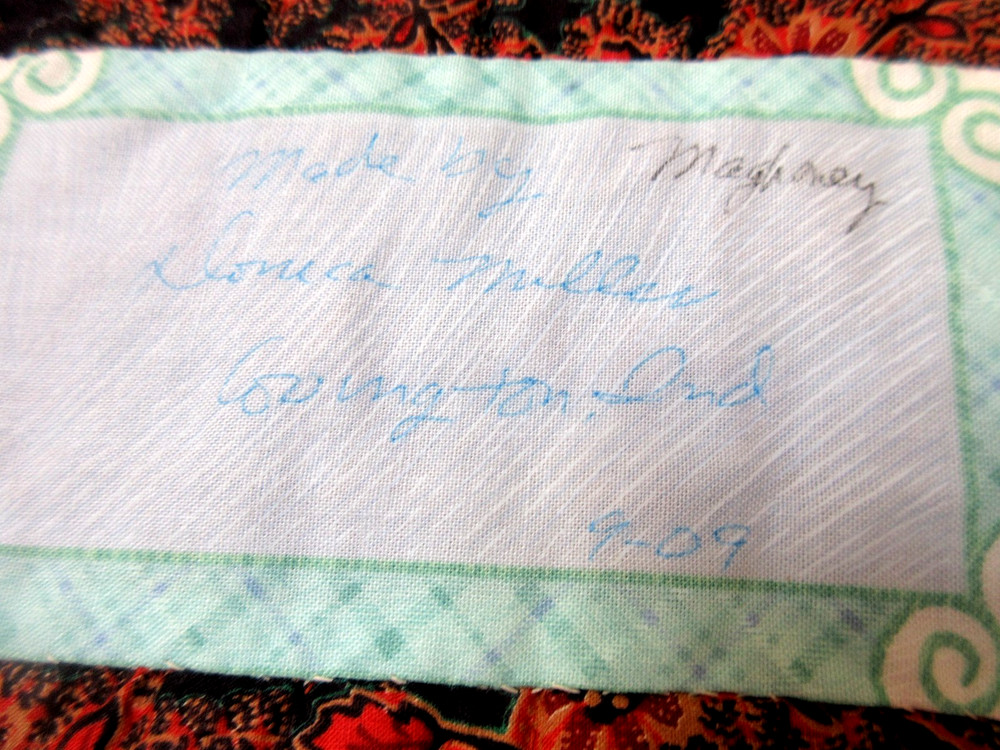 Made by Maghoney
Miller
Covington, Ind
9-09